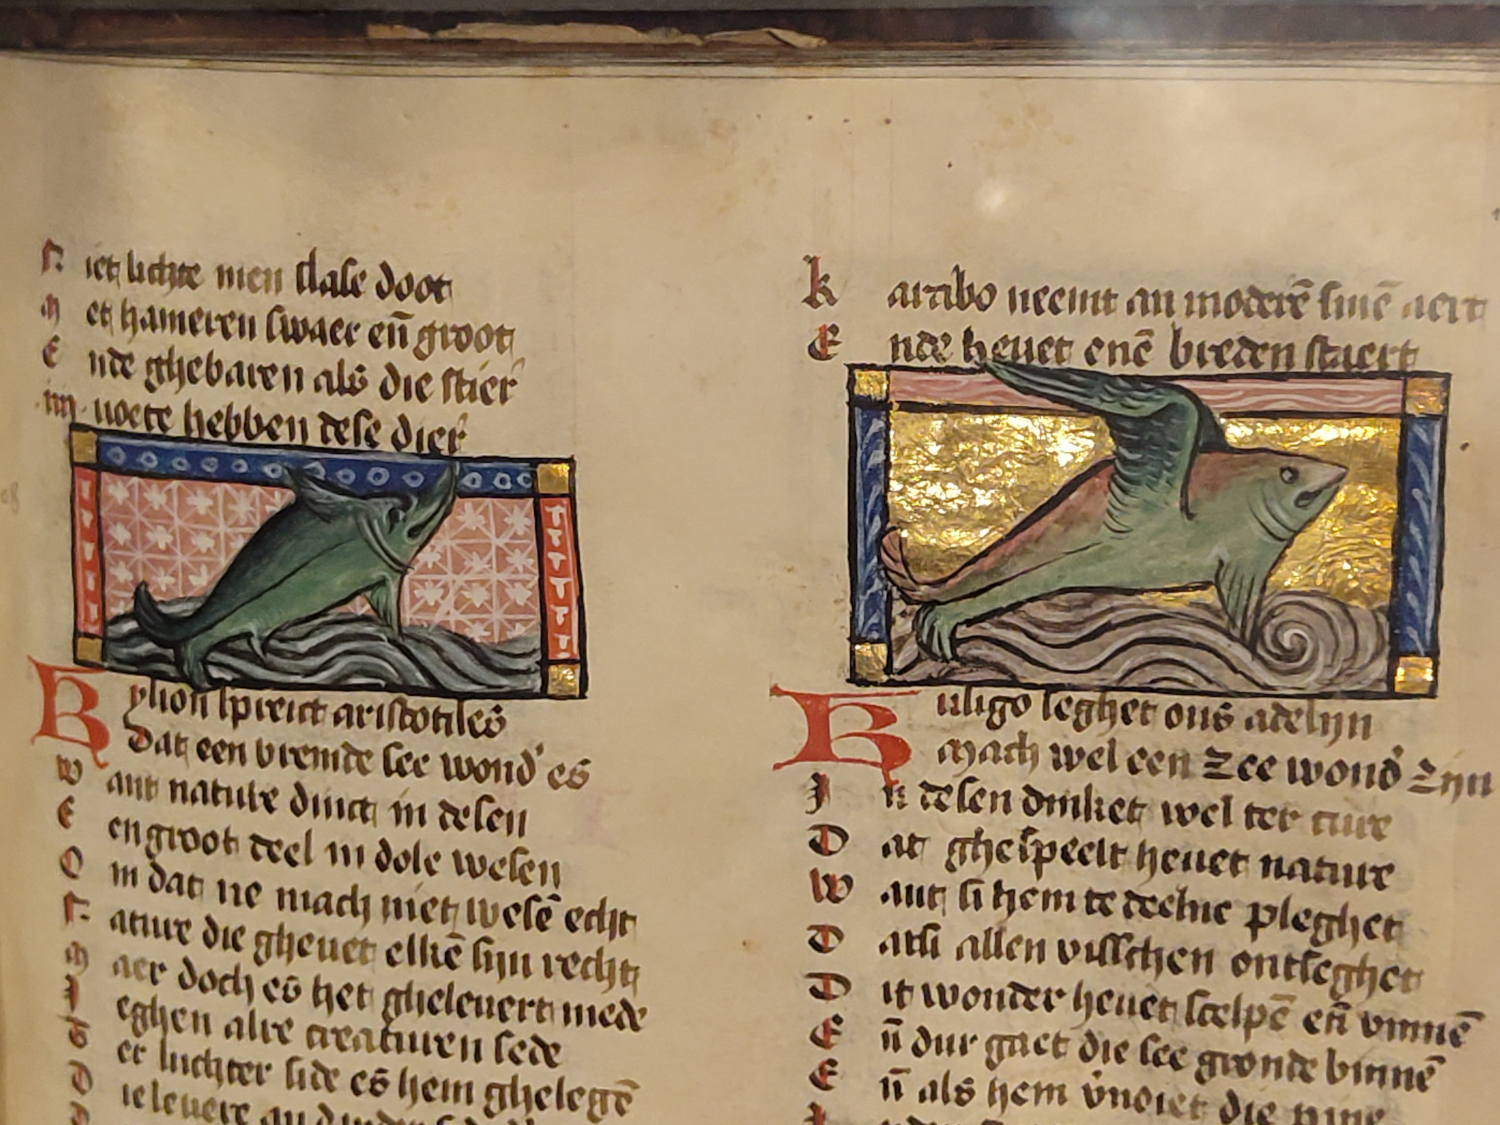 N iet lichte men slase doot
M et hameren swaer en̄ groot
E nde ghebaren als die stier
voete hebben dese dier
B ylion spreict aristotiles
Dat een vremde see wond' es
W ant nature dinct in desen
E en groot deel in dole wesen
O m dat ne mach niet wesē echt
N ature die gheuet elkē sijn recht
M aer doch es het gheleuert mede
J eghen alre creaturen sede
T er luchter side es hem gheleghē
D ie leuere
K arabo neemt an moderē sinē aert
E nde heuet enē breden staert
B uligo seghet ons adelijn
Mach wel een zee wond' zijn
J n desen dinket wel ter cure
D at ghespeelt heuet nature
W ant si hem te deelne pleghet
D atsi allen visschen ontseghet
D it wonder heuet scelpē en̄ vinnē
E n̄ dur gaet die see gronde binnē
E n̄ als hem die pine